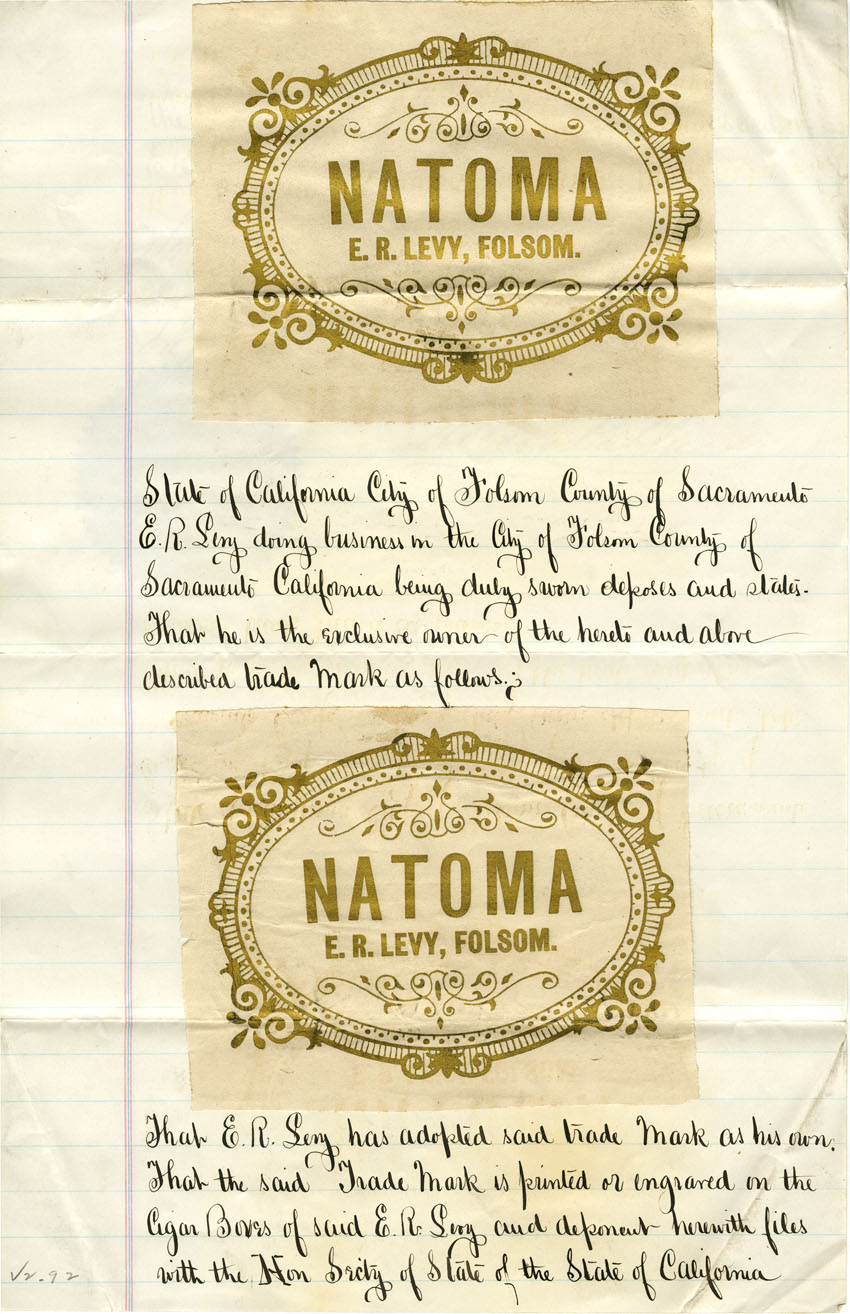 NATOMA
E. R. LEVY, FOLSOM.
State of California City of Folsom County of Sacramento
E. R. Levy doing business in the City of Folsom County of
Sacramento California being duly sworn deposes and states.
That he is the exclusive owner of the hereto and above
described trade Mark as follows.;
NATOMA
E. R. LEVY, FOLSOM.
That E. R. Levy has adopted said trade Mark as his own.
That the said Trade Mark is printed or engraved on the
Cigar Boxes of said E. R. Levy and deponent herewith files
with the Hon Secty of State of the State of California
V2-92